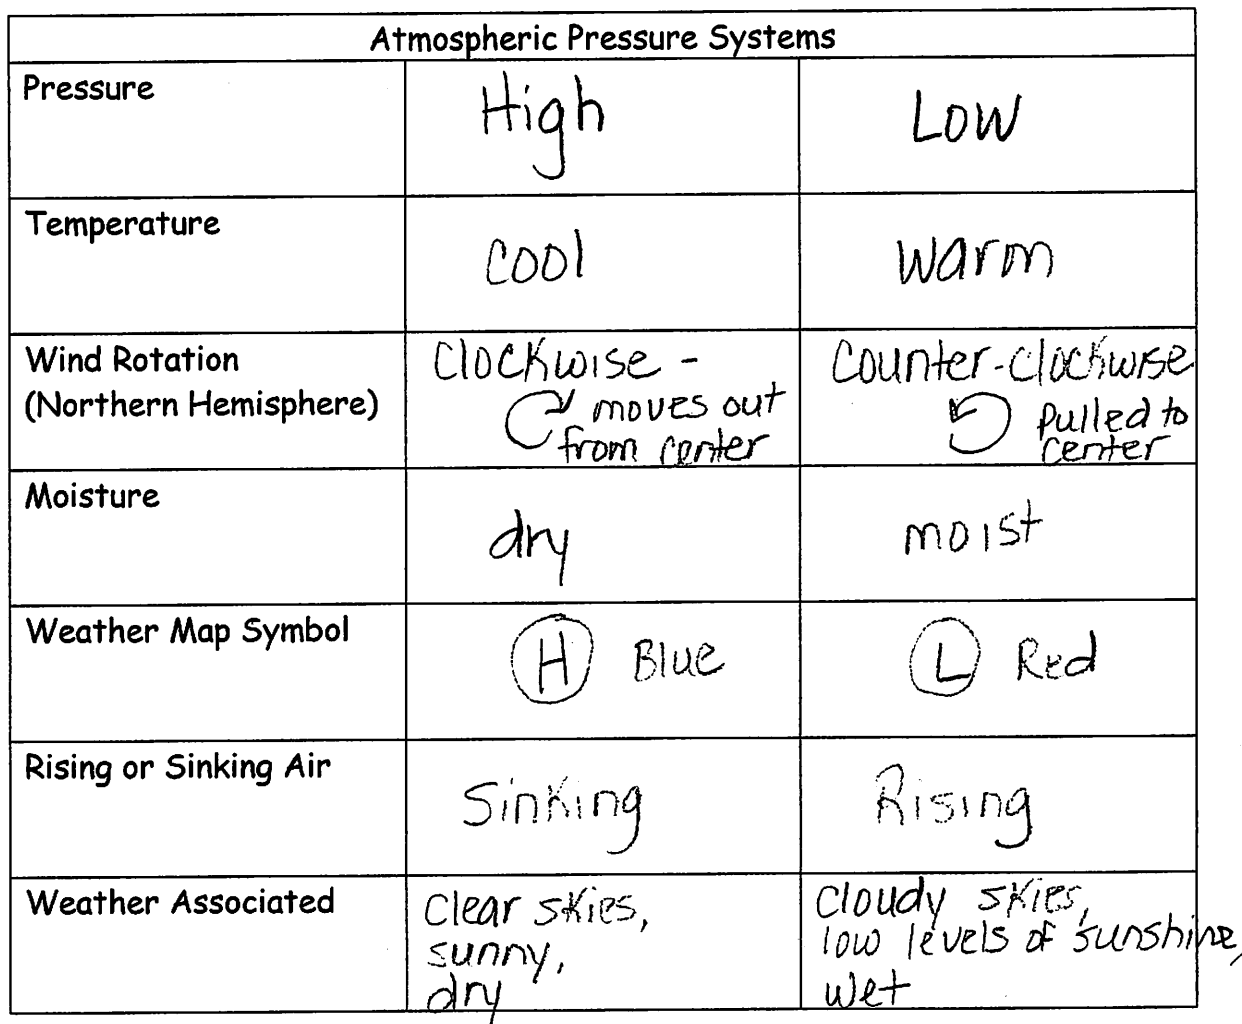 Atmospheric Pressure Systems
Pressure
High
Low
Temperature
cool
warm
Wind Rotation
(Northern Hemisphere)
Clockwise -
moves out
from center
Counter-clockwise
pulled to
center
Moisture
dry
moist
Weather Map Symbol
H Blue
L Red
Rising or Sinking Air
Sinking
Rising
Weather Associated
Clear skies,
sunny,
dry
Cloudy skies,
low levels of sunshine,
wet